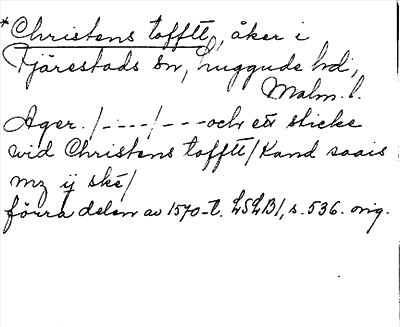 *Christens tofftt, åker i
Fjärestads sn, Luggude hd,
Malm. l.
Ager. /----/---och ett sticke
wid Christens tofftt/Kand saais
mz ij ské/
förra delen av 1570-t. LSLB1, s. 536. orig.